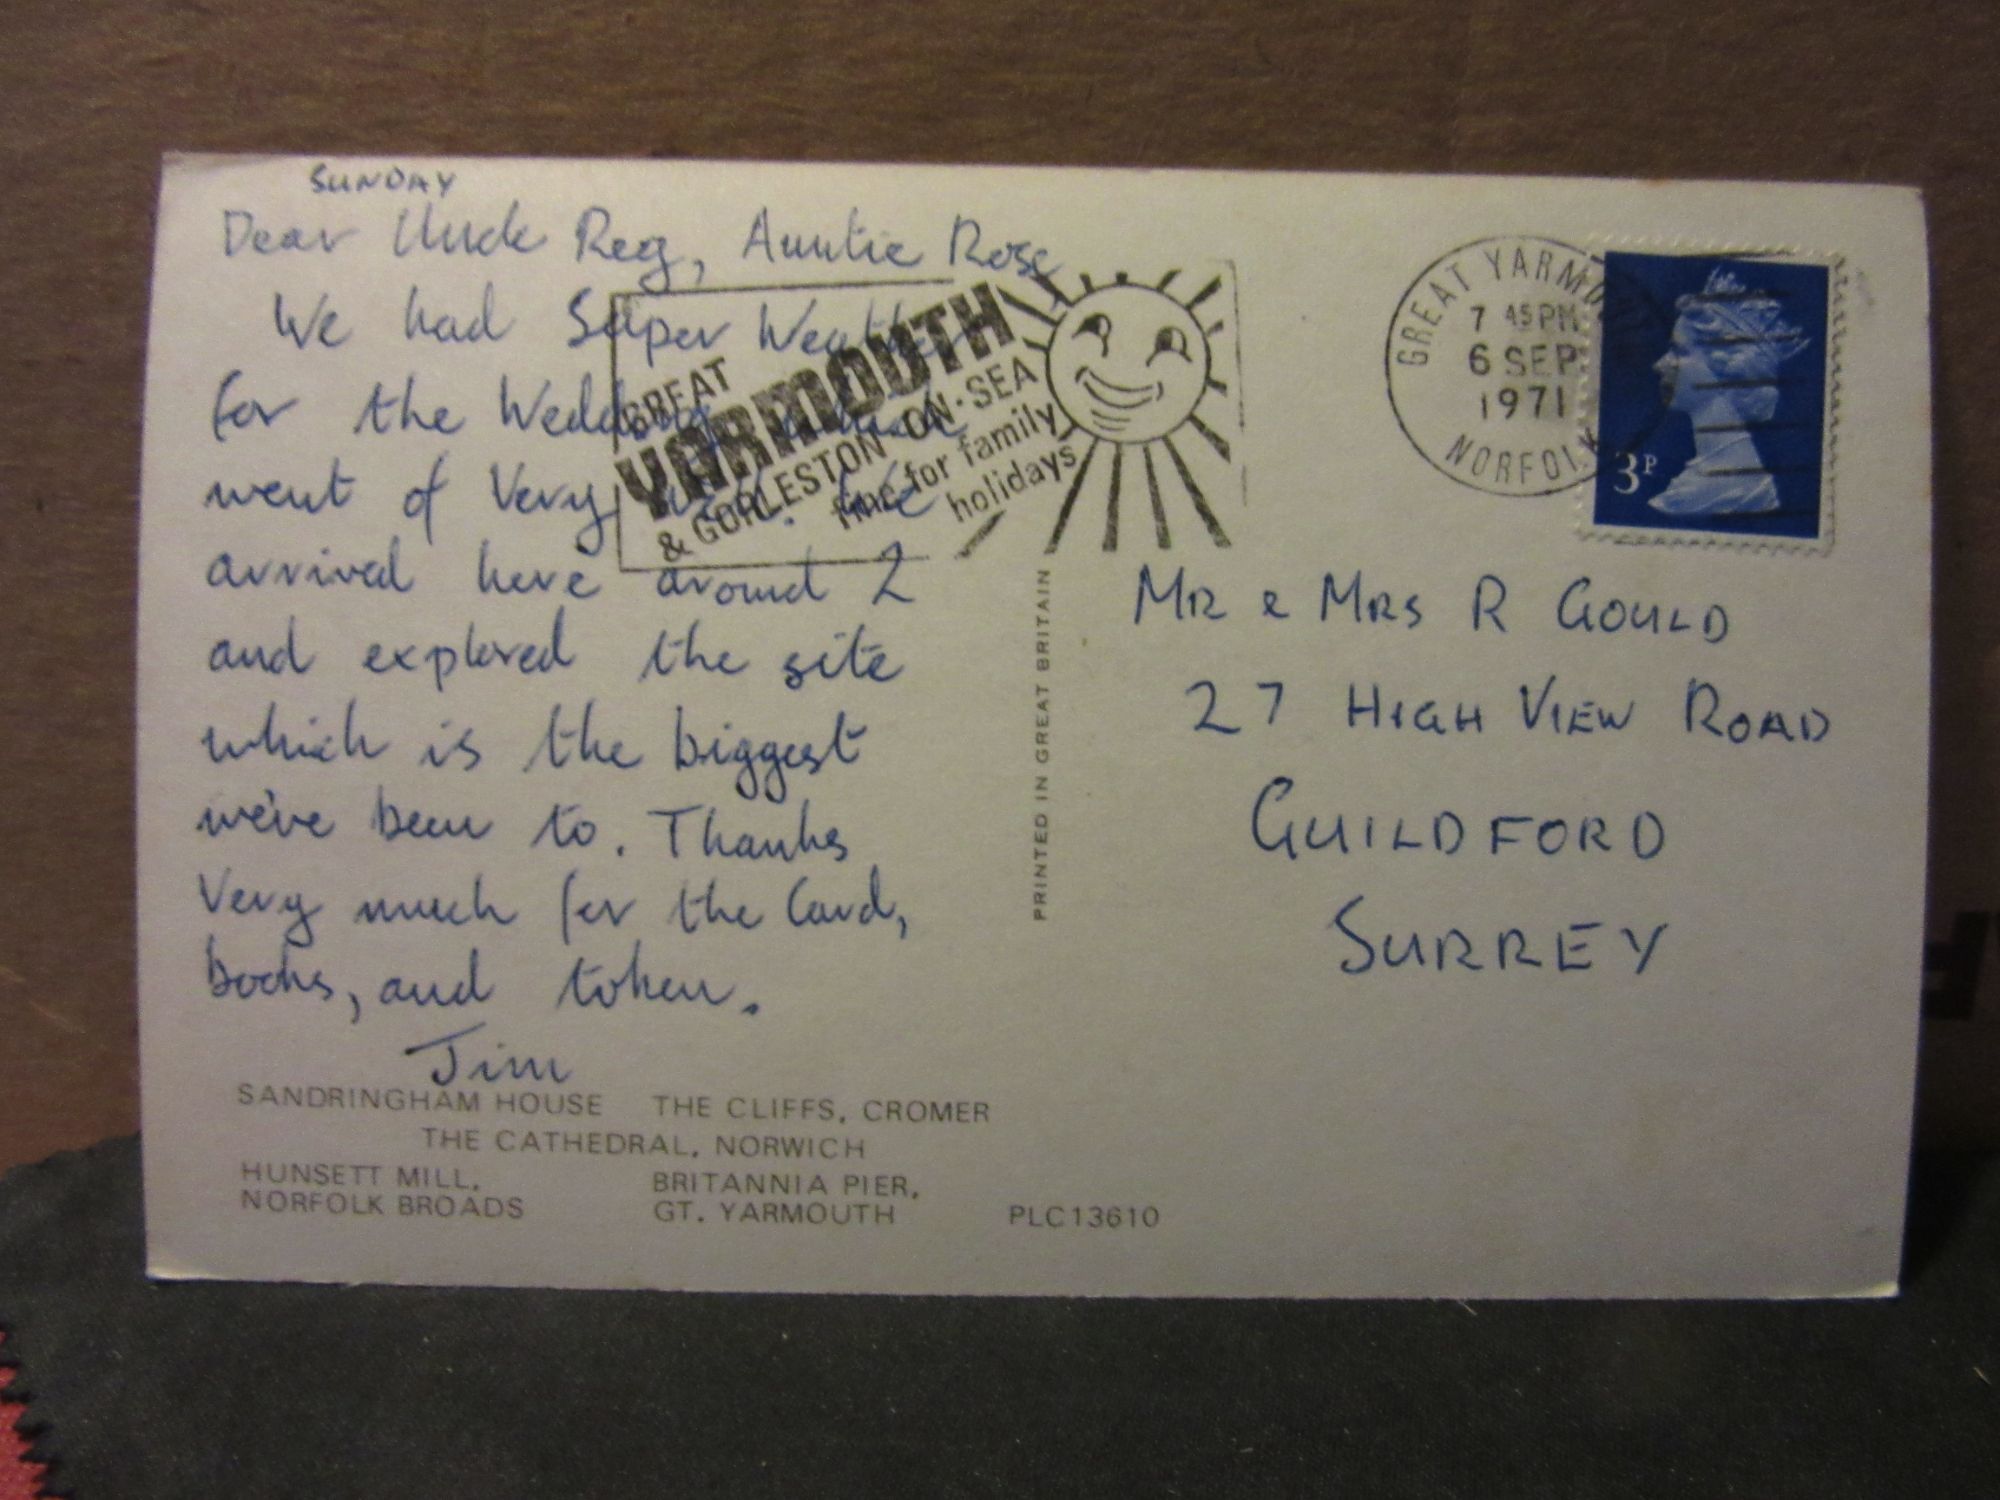 SUNDAY
Dear Uncle Reg, Auntie Rose
We had Super Weather
for the Wedding which
went of Very well. We
arrived here around 2
and explored the site
which is the biggest
we've been to. Thanks
Very much for the Card,
books, and token.
Jim
GREAT
YARMOUTH
& GORLESTON-ON-SEA
fine for family
holidays
GREAT YARMOUTH
7 45 PM
6 SEP
1971
NORFOLK
3P
MR & MRS R GOULD
27 HIGH VIEW ROAD
GUILDFORD
SURREY
PRINTED IN GREAT BRITAIN
SANDRINGHAM HOUSE THE CLIFFS, CROMER
THE CATHEDRAL, NORWICH
HUNSETT MILL, BRITANNIA PIER,
NORFOLK BROADS GT. YARMOUTH PLC13610